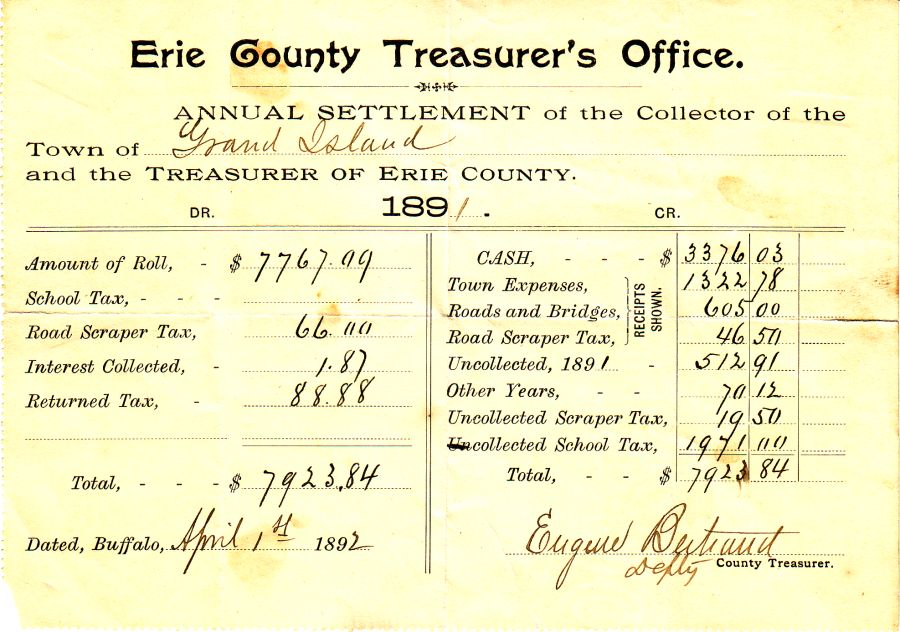 Erie County Treasurer's Office.
ANNUAL SETTLEMENT of the Collector of the
Town of Grand Island
and the TREASURER OF ERIE COUNTY.
DR. 1891. CR.
Amount of Roll, - $ 7767.09
School Tax, - - -
Road Scraper Tax, 66.00
Interest Collected, - 1.87
Returned Tax, - 88.88
Total, - - - $ 7923.84
Dated, Buffalo, April 1st 1892
CASH, - - - $ 3376 03
Town Expenses, 1322 78
Roads and Bridges, 605 00
Road Scraper Tax, 46 50
RECEIPTS SHOWN.
Uncollected, 1891 - 512 91
Other Years, - - 70 12
Uncollected Scraper Tax, 19 50
Uncollected School Tax, 1971 00
Total, - - - $ 7923 84
Eugene Bertrand
Depty County Treasurer.